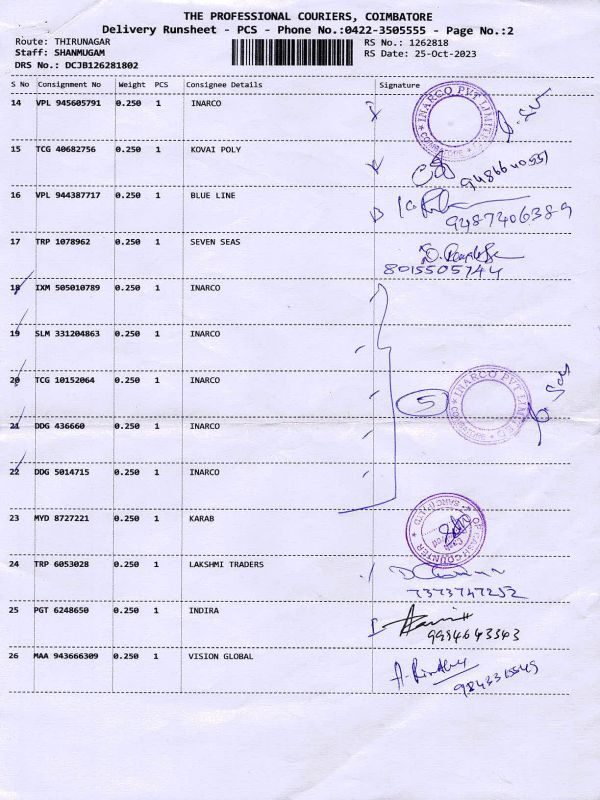 THE PROFESSIONAL COURIERS, COIMBATORE
Delivery Runsheet - PCS - Phone No.:0422-3505555 - Page No.:2
Route: THIRUNAGAR
Staff: SHANMUGAM
DRS No.: DCJB126281802
RS No.: 1262818
RS Date: 25-Oct-2023
S No Consignment No Weight PCS Consignee Details Signature
14 VPL 945605791 0.250 1 INARCO
INARCO PVT LIMITED
15 TCG 40682756 0.250 1 KOVAI POLY
16 VPL 944387717 0.250 1 BLUE LINE
9487406389
17 TRP 1078962 0.250 1 SEVEN SEAS
8015505744
18 IXM 505010789 0.250 1 INARCO
19 SLM 331204863 0.250 1 INARCO
20 TCG 10152064 0.250 1 INARCO
5
INARCO PVT LIMITED
21 DDG 436660 0.250 1 INARCO
22 DDG 5014715 0.250 1 INARCO
23 MYD 8727221 0.250 1 KARAB
24 TRP 6053028 0.250 1 LAKSHMI TRADERS
7373747252
25 PGT 6248650 0.250 1 INDIRA
9994643543
26 MAA 943666309 0.250 1 VISION GLOBAL